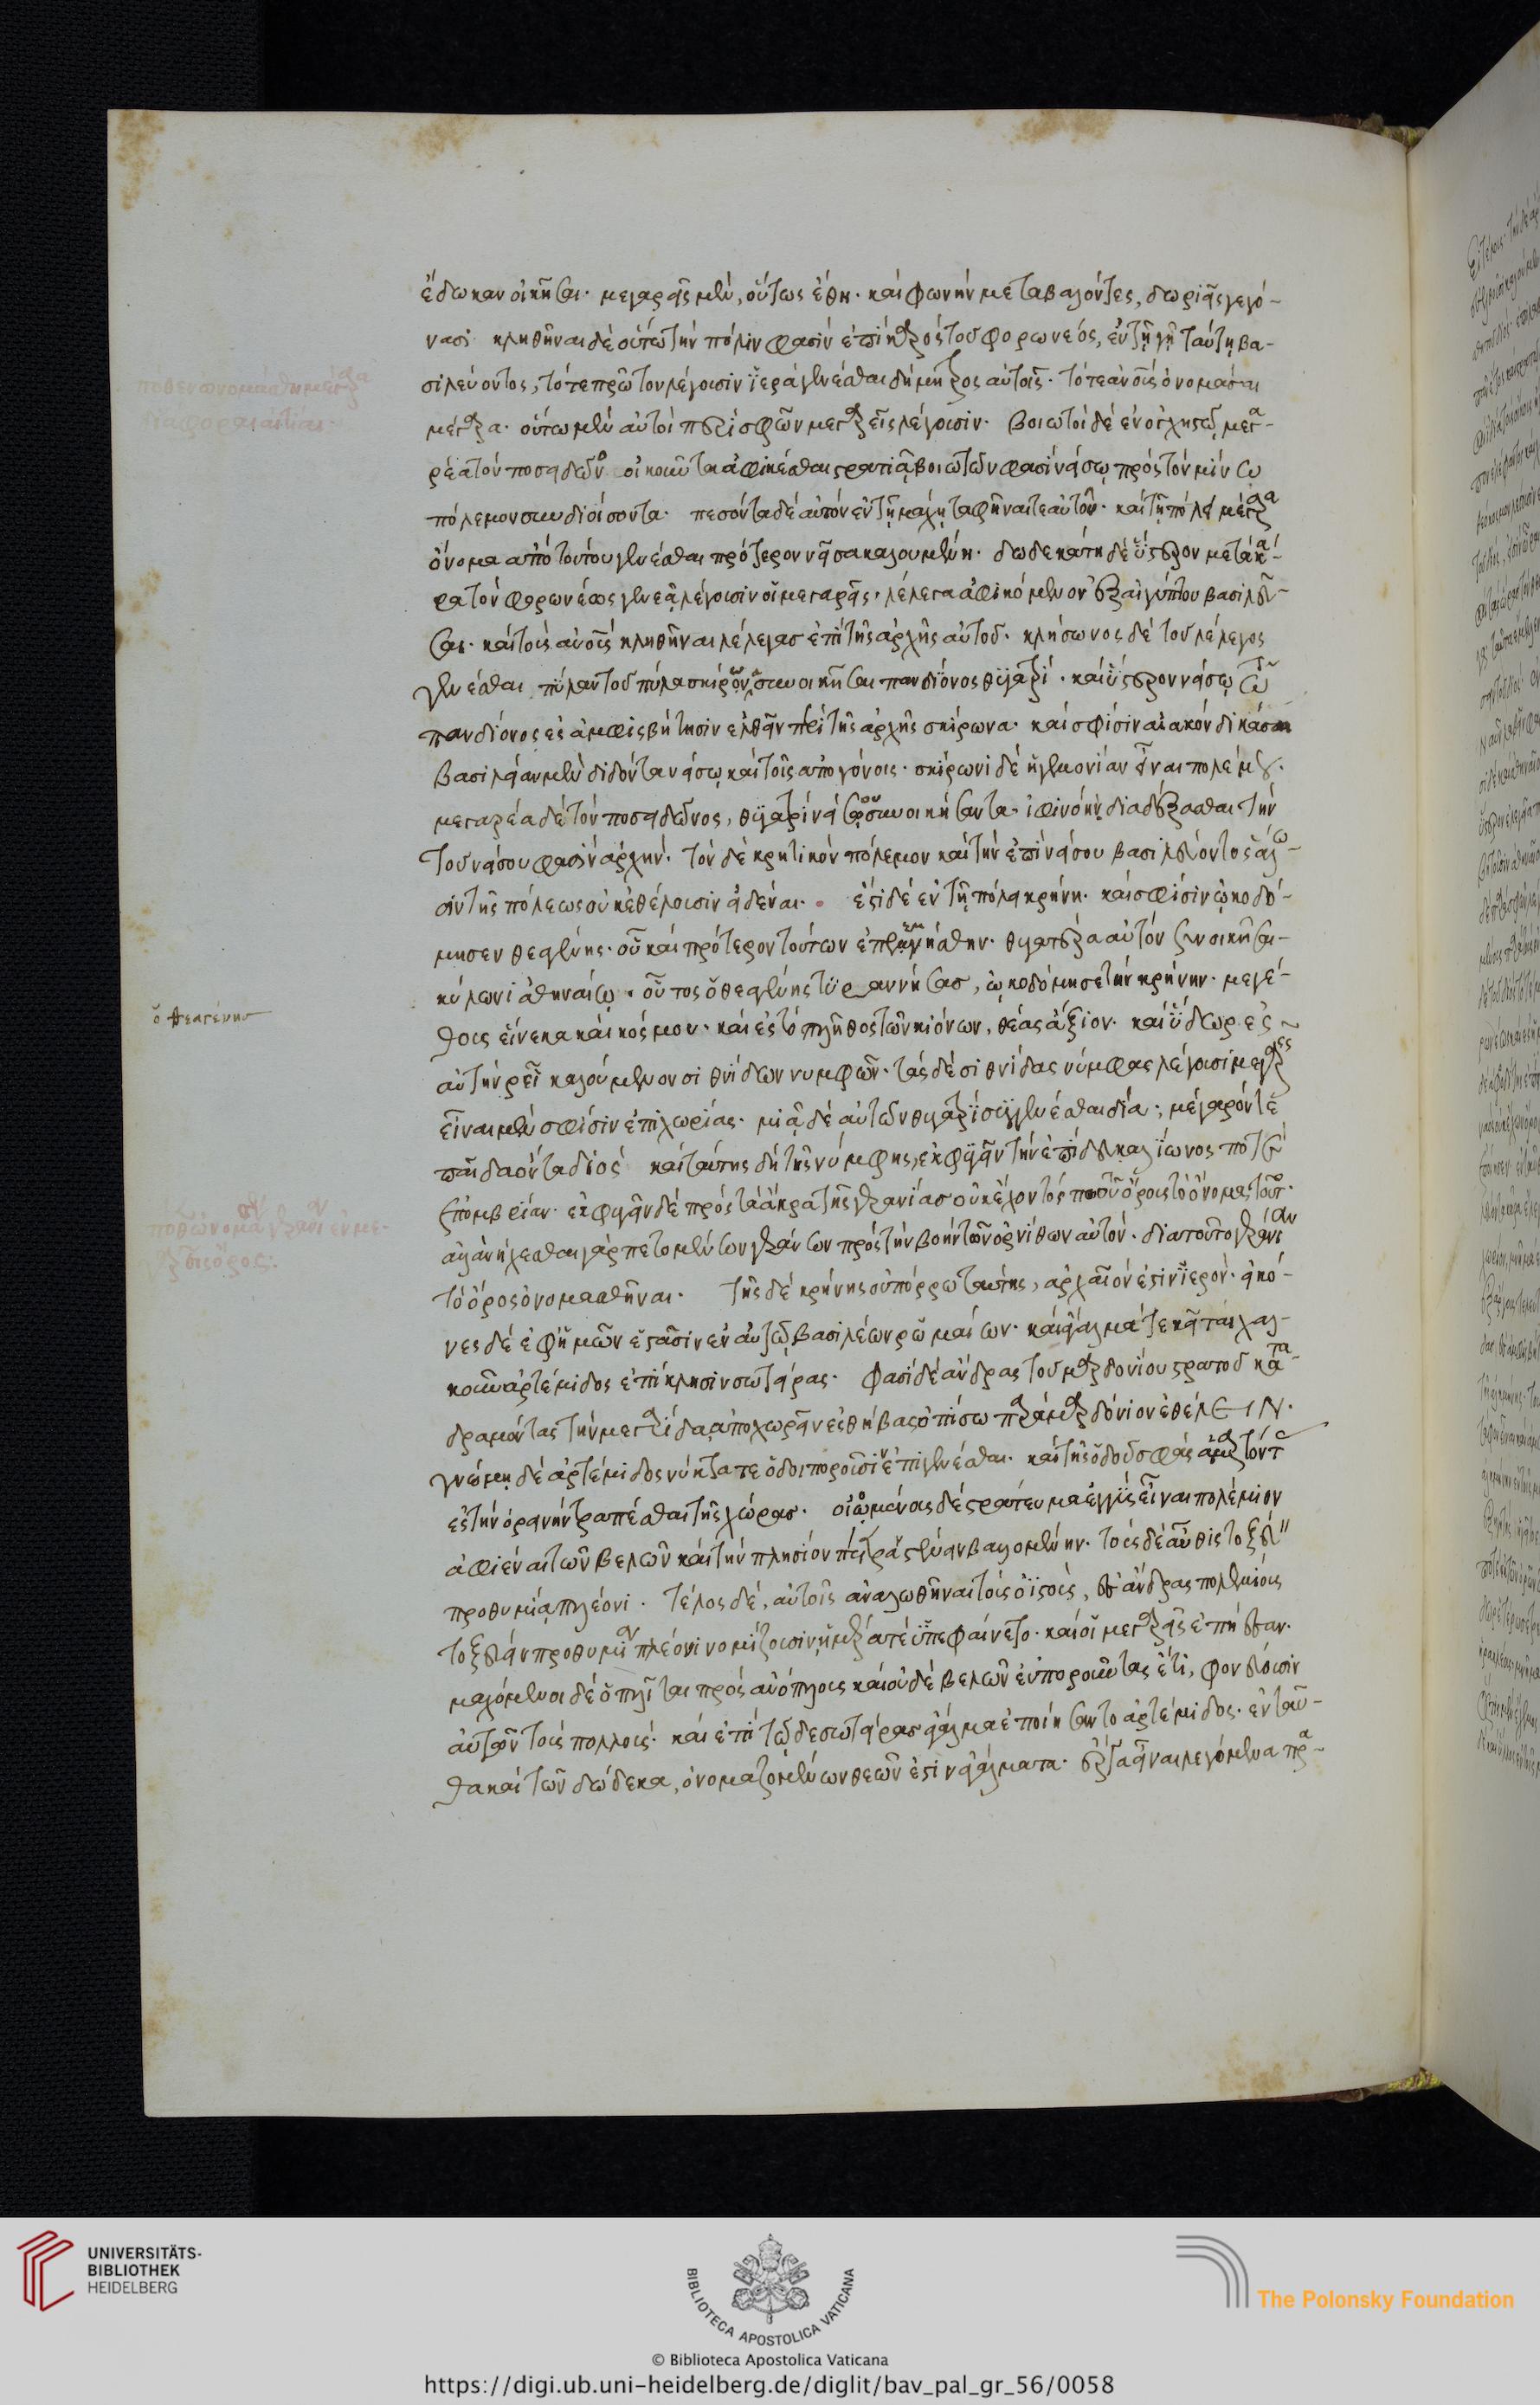 ἔδωκαν οἰκῆσαι· μεγαρεῖς μὲν, οὕτως ἔθη· καὶ φωνὴν μεταβαλόντες, δωριεῖς γεγό-
νασι κληθῆναι δὲ οὕτω τὴν πόλιν φασὶν ἐπὶ κὰρὸς τοῦ φορωνέος, ἐν τῇ γῇ ταύτῃ βα-
σιλεύοντος, τότε πρῶτον λέγουσιν ἱερὰ γενέσθαι δήμητρος αὐτοῖς· τότε ἀνοῖς ὀνομάσαι
μέγαρα· οὕτω μὲν αὐτοὶ περὶ σφῶν μεγαρεῖς λέγουσιν· βοιωτοὶ δὲ ἐν ὀγχηστῷ μεγα-
ρέα τὸν ποσειδῶνος οἰκοῦντα ἀφικέσθαι στρατιᾷ βοιωτῶν φασὶ νίσῳ πρὸς τὸν μίνω
πόλεμον συνδιοίσοντα· πεσόντα δὲ αὐτὸν ἐν τῇ μάχῃ ταφῆναί τε αὐτοῦ· καὶ τῇ πόλει μέγαρα
ὄνομα ἀπὸ τούτου γενέσθαι πρότερον νῖσα καλουμένη· δωδεκάτῃ δὲ ὕστερον μετὰ κᾶ-
ρα τὸν φορωνέως γενεᾷ λέγουσιν οἱ μεγαρεῖς, λέλεγα ἀφικόμενον ἐξ αἰγύπτου βασιλεῦ-
σαι· καὶ τοὺς ἀνοὺς κληθῆναι λέλεγασ ἐπὶ τῆς ἀρχῆς αὐτοῦ· κλήσωνος δὲ τοῦ λέλεγος
γενέσθαι πύλαν τοῦ πύλα σκίρωνα συνοικῆσαι πανδίονος θυγατρί· καὶ ὕστερον νίσῳ τῷ
πανδίονος ἐς ἀμφισβήτησιν ἐλθεῖν περὶ τῆς ἀρχῆς σκίρωνα· καὶ σφίσιν αἰακὸν δικάσαι
βασιλείαν μὲν διδόντα νίσῳ καὶ τοῖς ἀπογόνοις· σκίρωνι δὲ ἡγεμονίαν εἶναι πολέμου·
μεγαρέα δὲ τὸν ποσειδῶνος, θυγατρὶ νίσου συνοικήσαντα· ἰφινόῃ διαδέξασθαι τὴν
τοῦ νίσου φασὶν ἀρχήν· τὸν δὲ κρητικὸν πόλεμον καὶ τὴν ἐπὶ νίσου βασιλεύοντος ἅλω-
σιν τῆς πόλεως οὐκ ἐθέλουσιν εἰδέναι· ἔστι δὲ ἐν τῇ πόλει κρήνη· καὶ σφίσιν ᾠκοδό-
μησεν θεαγένης· οὗ καὶ πρότερον τούτων ἐπεμνήσθην· θυγατέρα αὐτὸν συνοικῆσαι
κύλωνι ἀθηναίῳ· οὗτος ὁ θεαγένης τυραννήσασ, ᾠκοδόμησε τὴν κρήνην· μεγέ-
θους εἵνεκα καὶ κόσμου· καὶ ἐς τὸ πλῆθος τῶν κιόνων, θέας ἄξιον· καὶ ὕδωρ ἐς
ὁ θεαγένης
αὐτὴν ῥεῖ καλούμενον σιθνίδων νυμφῶν· τὰς δὲ σιθνίδας νύμφας λέγουσι μεγαρεῖς
εἶναι μὲν σφίσιν ἐπιχωρίας· μιᾷ δὲ αὐτῶν θυγατρὶ συγγενέσθαι δία· μέγαρόν τε
παῖδα ὄντα διὸς καὶ ταύτης δὴ τῆς νύμφης, ἐκφυγεῖν τὴν ἐπὶ δευκαλίωνος ποτὲ
ἐπομβρίαν· ἐκφυγεῖν δὲ πρὸς τὰ ἄκρα τῆς γερανίασ οὐκ ἔχοντός πω τοῦ ὄρους τὸ ὄνομα τοῦτο·
ἀλλὰ νήχεσθαι γὰρ πετομένων γεράνων πρὸς τὴν βοὴν τῶν ὀρνίθων αὐτόν· διὰ τοῦτο γερανίαν
τὸ ὄρος ὀνομασθῆναι· τῆς δὲ κρήνης οὐ πόρρω ταύτης, ἀρχαῖόν ἐστιν ἱερόν· εἰκό-
νες δὲ ἐφ' ἡμῶν ἑστᾶσιν ἐν αὐτῷ βασιλέων ῥωμαίων· καὶ ἄγαλμά τε κεῖται χαλ-
κοῦν ἀρτέμιδος ἐπίκλησιν σωτείρας· φασὶ δὲ ἄνδρας τοῦ μαρδονίου στρατοῦ κατα-
δραμόντας τὴν μεγαρίδα ἀποχωρεῖν ἐς θήβας ὀπίσω παρὰ μαρδόνιον ἐθέλειν·
γνώμῃ δὲ ἀρτέμιδος νύκτα τε ὁδοιποροῦσιν ἐπιγενέσθαι· καὶ τῆς ὁδοῦ σφᾶς ἁμαρτόντας
ἐς τὴν ὀρεινὴν τραπέσθαι τῆς χώρασ· οἰωμένους δὲ στράτευμα ἐγγὺς εἶναι πολέμιον
ἀφιέναι τῶν βελῶν καὶ τὴν πλησίον πέτρα στένειν βαλομένην· τοὺς δὲ αὖθις τοξεύ-
προθυμίᾳ πλέονι· τέλος δὲ, αὐτοῖς ἀναλωθῆναι τοὺς ὀϊστοὺς, ἐς ἄνδρας πολεμίους
τοξεύειν προθυμίαν πλέονι νομίζουσιν ἡμέρα τε ὑπεφαίνετο· καὶ οἱ μεγαρεῖς ἐπήεσαν·
μαχόμενοι δὲ ὁπλῖται πρὸς ἀνόπλους καὶ οὐδὲ βελῶν εὐποροῦντας ἔτι, φονεύουσιν
αὐτῶν τοὺς πολλούς· καὶ ἐπὶ τῷδε σωτείρασ ἄγαλμα ἐποιήσαντο ἀρτέμιδος· ἐνταῦ-
θα καὶ τῶν δώδεκα, ὀνομαζομένων θεῶν ἐστιν ἀγάλματα· ἔργα εἶναι λεγόμενα πρα-
UNIVERSITÄTS-
BIBLIOTHEK
HEIDELBERG
BIBLIOTECA APOSTOLICA VATICANA
The Polonsky Foundation
© Biblioteca Apostolica Vaticana
https://digi.ub.uni-heidelberg.de/diglit/bav_pal_gr_56/0058